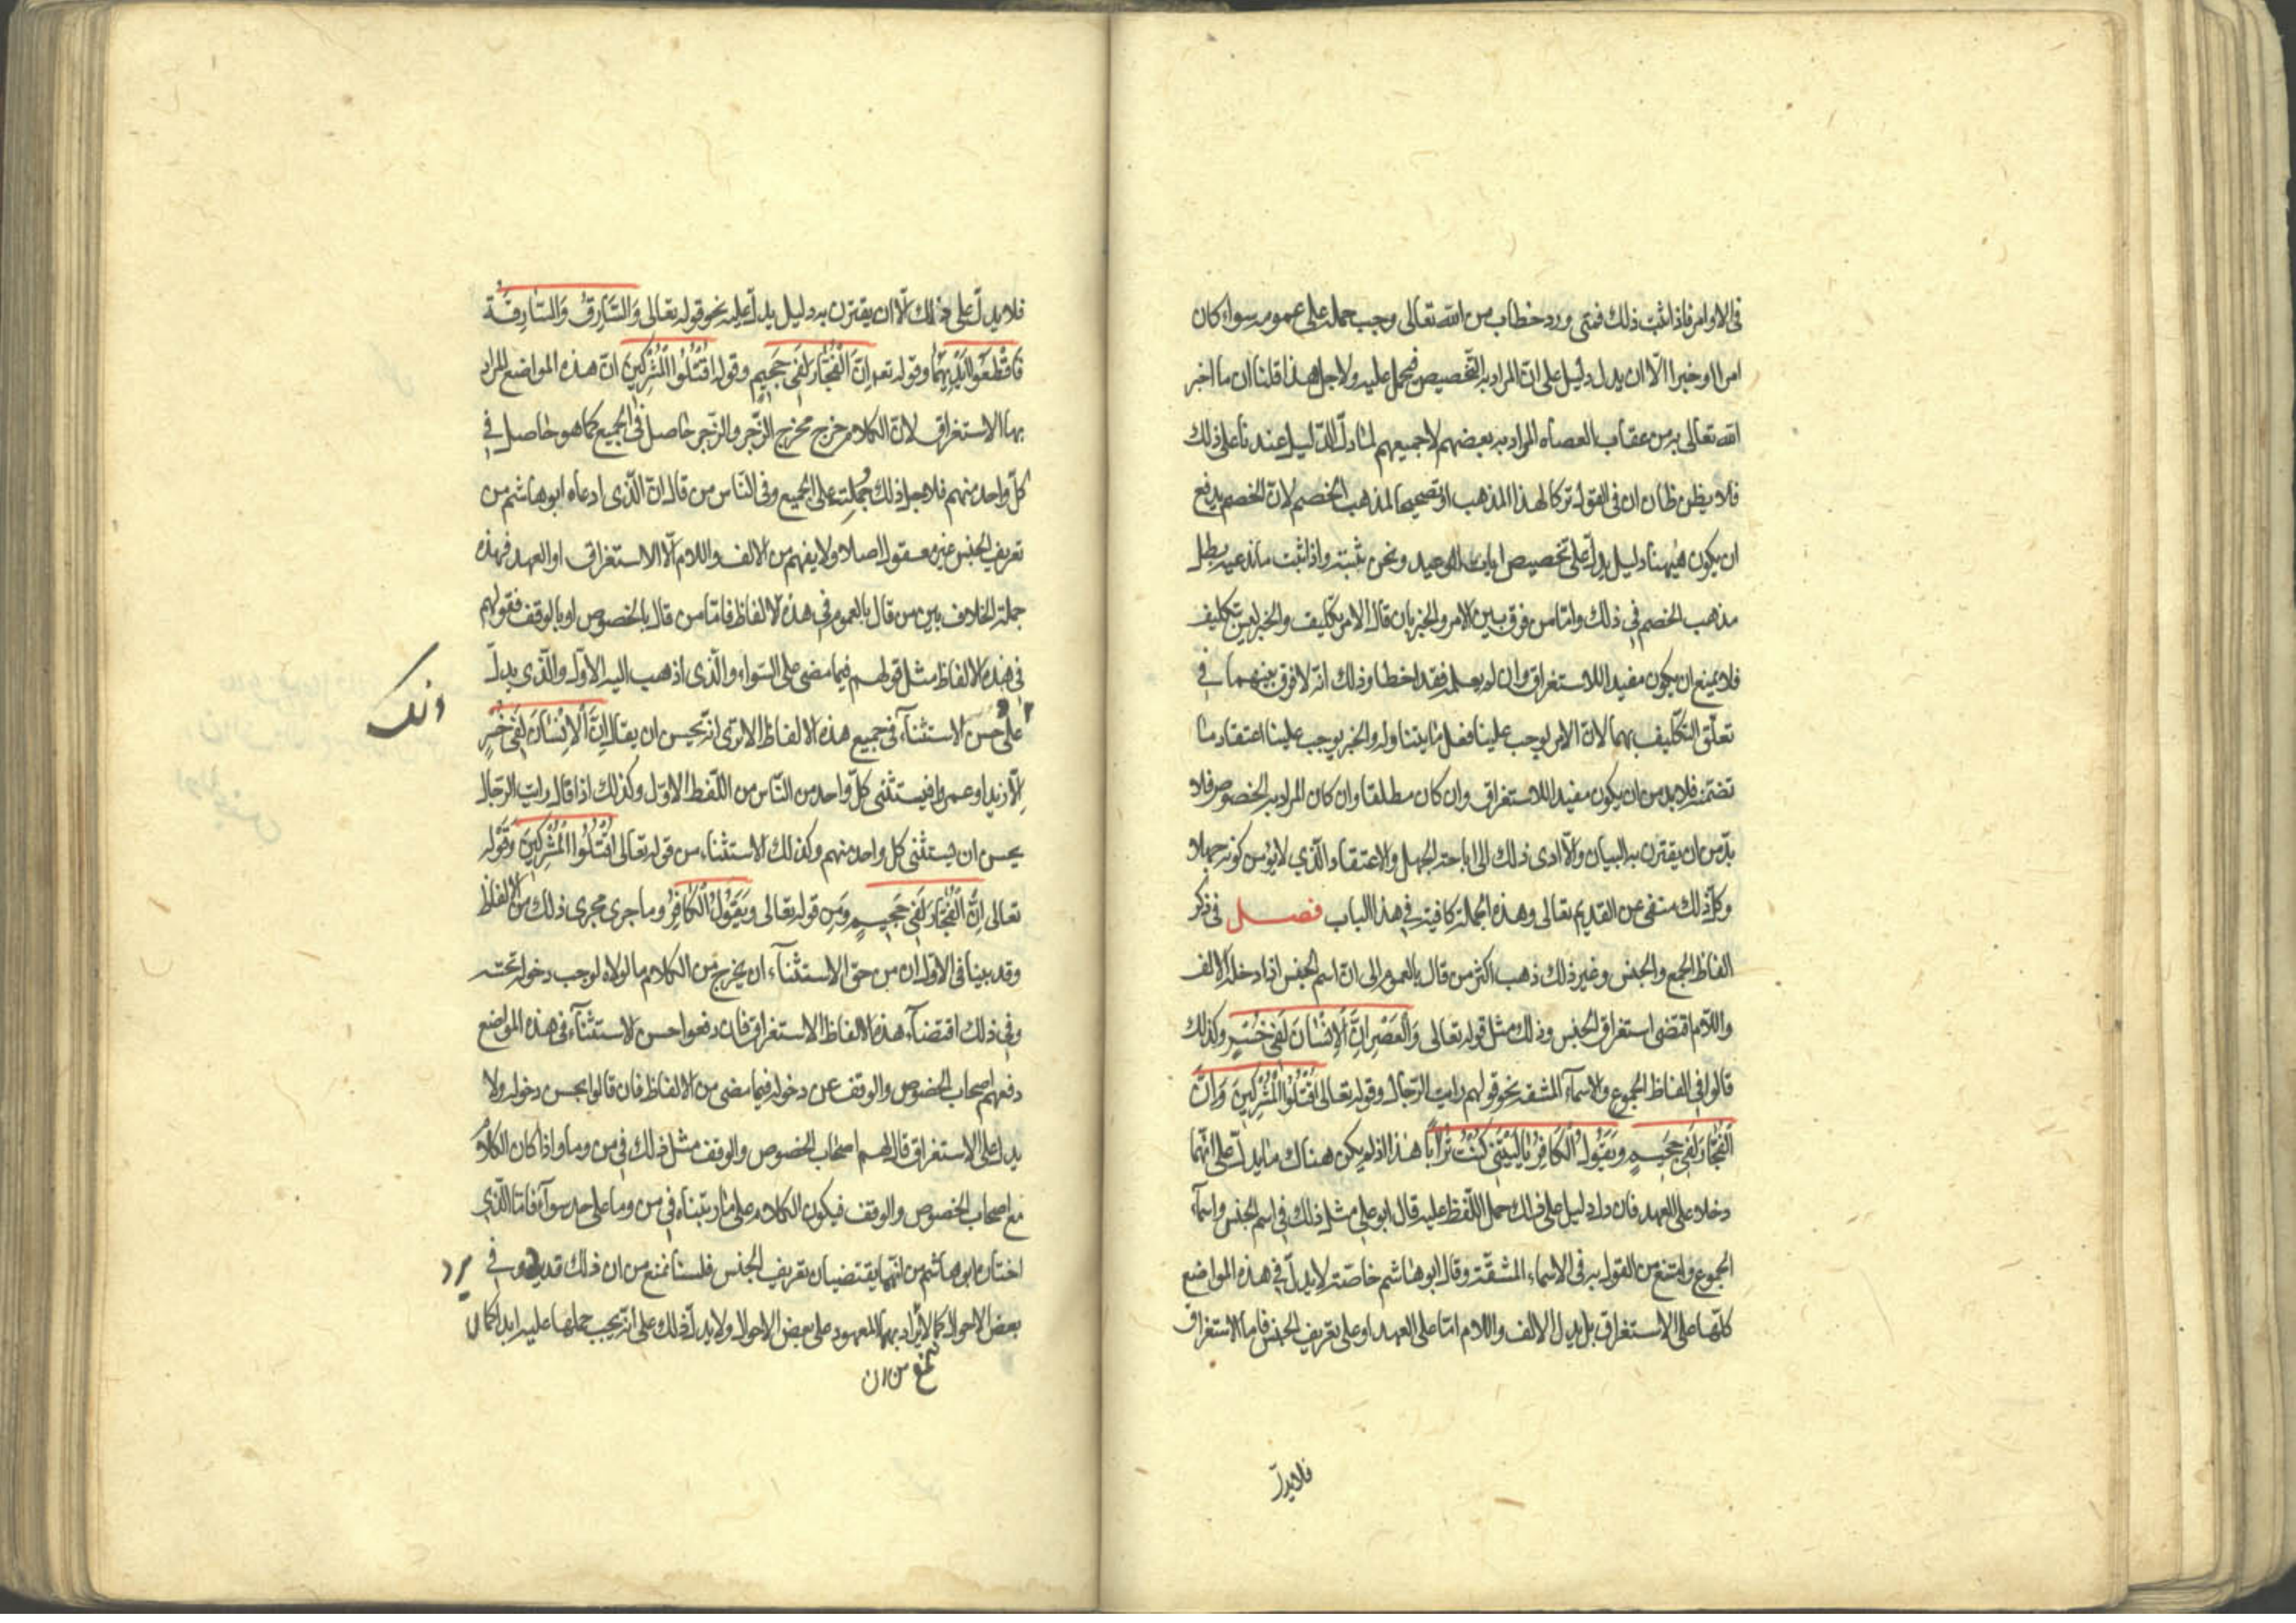 فى الاوامر فاذا ثبت ذلك فمتى ورد خطاب من الله تعالى وجب حمله على عمومه سواء كان
امرا او خبرا الّا ان يدل دليل على انّ المراد به التّخصيص فيحمل عليه ولاجل هذا قلنا ان ما اخبر
الله تعالى به من عقاب العصاه المراد به بعضهم لا جميعهم لما دلّ الدّليل عندنا على ذلك
فلا يظن ظان ان فى القول تركا لهذا المذهب او تصحيحا لمذهب الخصم لانّ الخصم يدفع
ان يكون هيهنا دليل يدلّ على تخصيص ايات الوعيد ونحن نثبته واذا ثبت ما ندعيه بطل
مذهب الخصم فى ذلك وامّا من فرق بين الامر والخبر بان قال الامر تكليف والخبر ليس بتكليف
فلا يمنع ان يكون مفيدا للاستغراق وان لم يعلم فقد اخطا وذلك انّه لا فرق بينهما فى
تعلّق التّكليف بهما لانّ الامر يوجب علينا فعل ما يتناوله والخبر يوجب علينا اعتقاد ما
تضمّنه فلا بد من ان يكون مفيدا للاستغراق وان كان مطلقا وان كان المراد به الخصوص فلا
بدّ من ان يقترن به البيان والّا ادى ذلك الى اباحة الجهل والاعتقاد الّذي لا يؤمن كونه جهلا
وكلّ ذلك منفى عن القديم تعالى وهذه الجملة كافية فى هذا الباب فصل فى ذكر
الفاظ الجمع والجنس وغير ذلك ذهب اكثر من قال بالعموم الى انّ اسم الجنس اذا دخله الالف
واللّام اقتضى استغراق الجنس وذلك مثل قوله تعالى وَالْعَصْرِ اِنَّ الْاِنْسٰانَ لَفى خُسْرٍ وكذلك
قالوا فى الفاظ الجموع والاسمآء المشتقه نحو قولهم رايت الرّجال وقوله تعالى اُقْتُلُوا الْمُشْرِكينَ وَاِنَّ
الْفُجّٰارَ لَفى جَحيمٍ وَيَقُولُ الْكٰافِرُ يٰا لَيْتَنى كُنْتُ تُرٰابًا هذا اذا لم يكن هناك ما يدلّ على انّهما
دخلا على العهد فان دل دليل على ذلك حمل اللّفظ عليه قال ابو على مثل ذلك فى اسم الجنس واسمآء
الجموع وامتنع من القول به فى الاسماء المشتقّة وقال ابو هاشم خاصّة لا يدلّ فى هذه المواضع
كلّها على الاستغراق بل يدل الالف واللام امّا على العهد او على تعريف الجنس فاما الاستغراق
فلا يدلّ
فلا يدلّ على ذلك الّا ان يقترن به دليل يدلّ عليه نحو قوله تعالى وَالسّٰارِقُ وَالسّٰارِقَةُ
فَاقْطَعُوا اَيْدِيَهُمٰا وقوله تعـ اِنَّ الْفُجّٰارَ لَفى جَحيمٍ وقوله اقْتُلُوا الْمُشْرِكينَ انّ هذه المواضع المراد
بها الاستغراق لانّ الكلام خرج مخرج الزّجر والزّجر حاصل فى الجميع كما هو حاصل فى
كلّ واحد منهم فلاجل ذلك حُمِلَت على الجميع وفى النّاس من قال انّ الّذى ادعاه ابو هاشم من
تعريف الجنس غير معقول اصلا ولا يفهم من الالف واللام الّا الاستغراق او العهد فهذه
جملة الخلاف بين من قال بالعموم فى هذه الالفاظ فامّا من قال بالخصوص او بالوقف فقولهم
فى هذه الالفاظ مثل قولهم فيما مضى على السّواء والّذى اذهب اليه الاوّل والّذى يدلّ
ذلك
على حسن الاستثنآء فى جميع هذه الالفاظ الا ترى انّه يحسن ان يقال اِنَّ الْاِنْسٰانَ لَفى خُسْرٍ
اِلّا زيدا او عمروا فيستثنى كلّ واحد من النّاس من اللّفظ الاوّل وكذلك اذا قال رايت الرّجال
يحسن ان يستثنى كل واحد منهم وكذلك الاستثناء من قوله تعالى اُقْتُلُوا الْمُشْرِكينَ وقوله
تعالى اِنَّ الْفُجّٰارَ لَفى جَحيمٍ ومن قوله تعالى وَيَقُولُ الْكٰافِرُ وما جرى مجرى ذلك من الالفاظ
وقد بينا فى الاوّل ان من حق الاستثنآء ان يخرج من الكلام ما لولاه لوجب دخوله تحته
وفى ذلك اقتضآء هذه الالفاظ الاستغراق فان دفعوا حسن الاستثنآء فى هذه المواضع
دفعهم اصحاب الخصوص والوقف عن دخوله فيما مضى من الالفاظ فان قالوا يحسن دخوله ولا
يدل على الاستغراق قال لهم اصحاب الخصوص والوقف مثل ذلك فى من وما واذا كان الكلام
مع اصحاب الخصوص والوقف فيكون الكلام على ما رتّبناه فى من وما على حد سوآء فامّا الّذى
اختاره ابو هاشم من انّهما يقتضيان تعريف الجنس فلسنا نمنع من ان ذلك قد يرد فى
يرد
بعض الاحوال كما لا يراد بهما المعهود على بعض الاحوال ولا يدلّ ذلك على انّه يجب حملها عليه ابدا كما ان
نمنع من ان